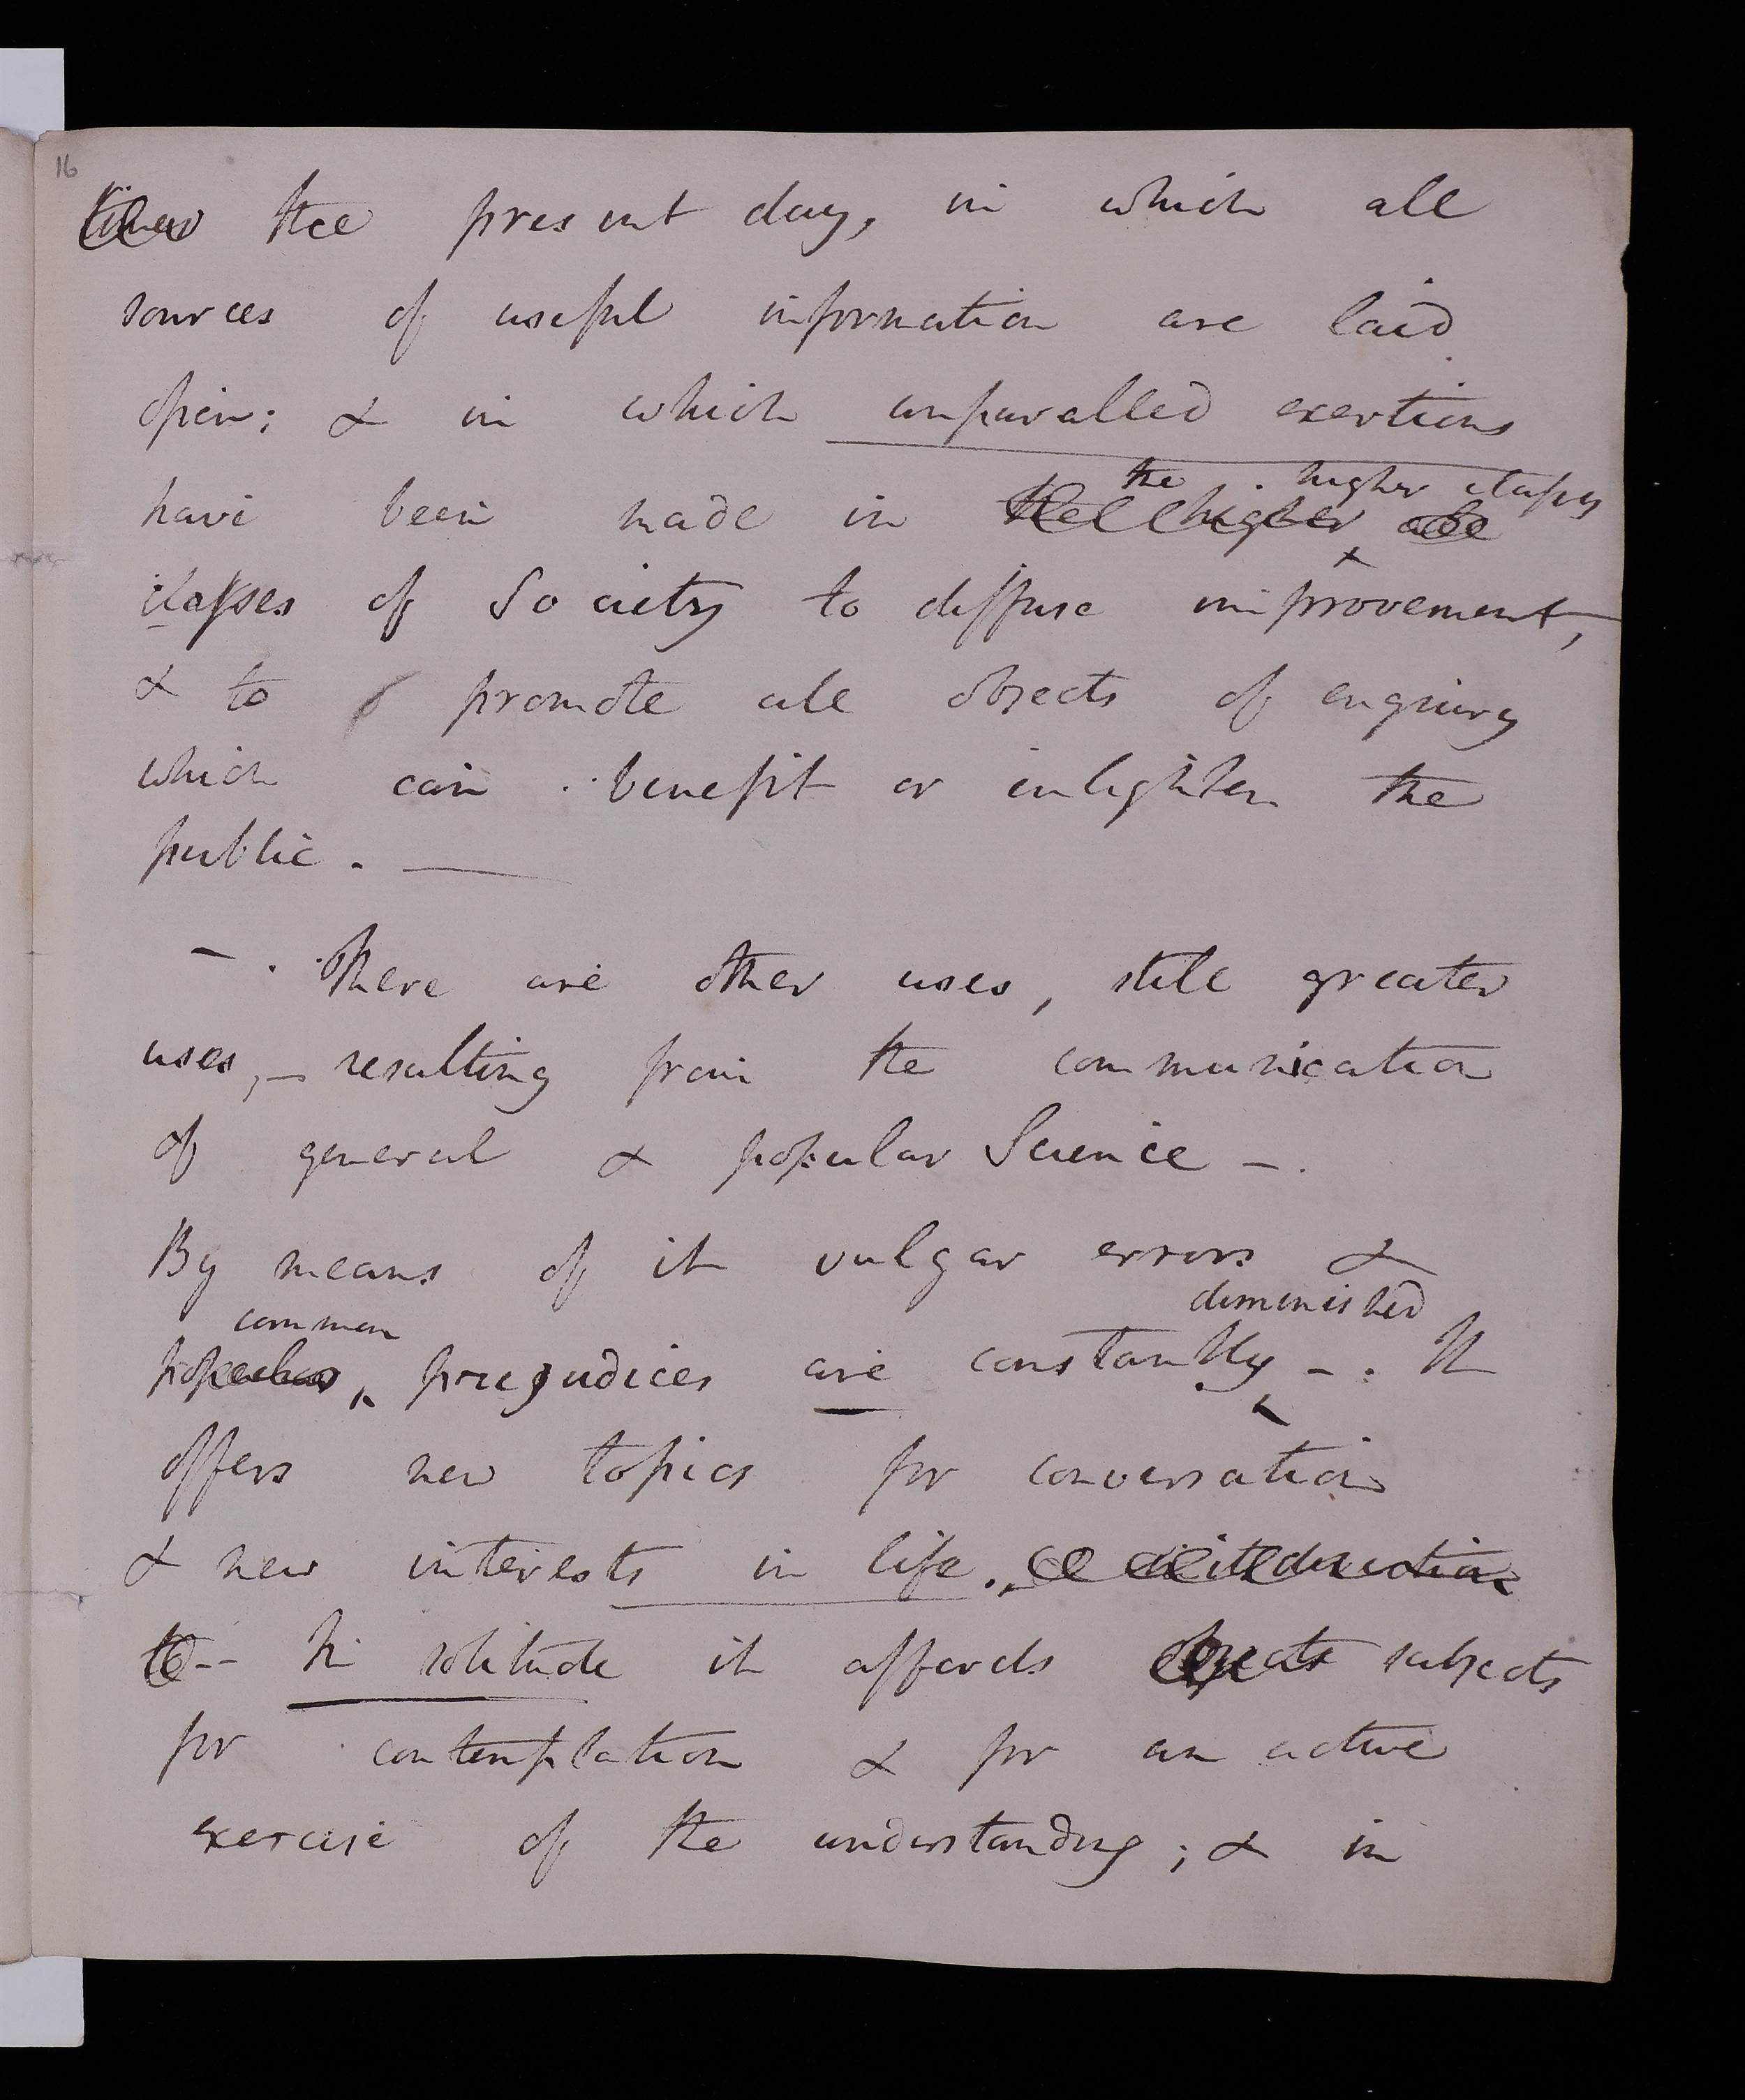 16
times the present day, in which all
sources of useful information are laid
open; & in which unparalled exertions
the higher classes
have been made in the higher all
classes of Society to diffuse improvement,
& to promote all objects of enquiry
which can benefit or enlighten the
public. —
— There are other uses, still greater
uses, — resulting from the communication
of general & popular Science —.
By means of it vulgar errors &
common diminished
popular prejudices are constantly — . It
offers new topics for conversation
& new interests in life. introduction
to -- In solitude it affords objects subjects
for contemplation & for an active
exercise of the understanding; & in